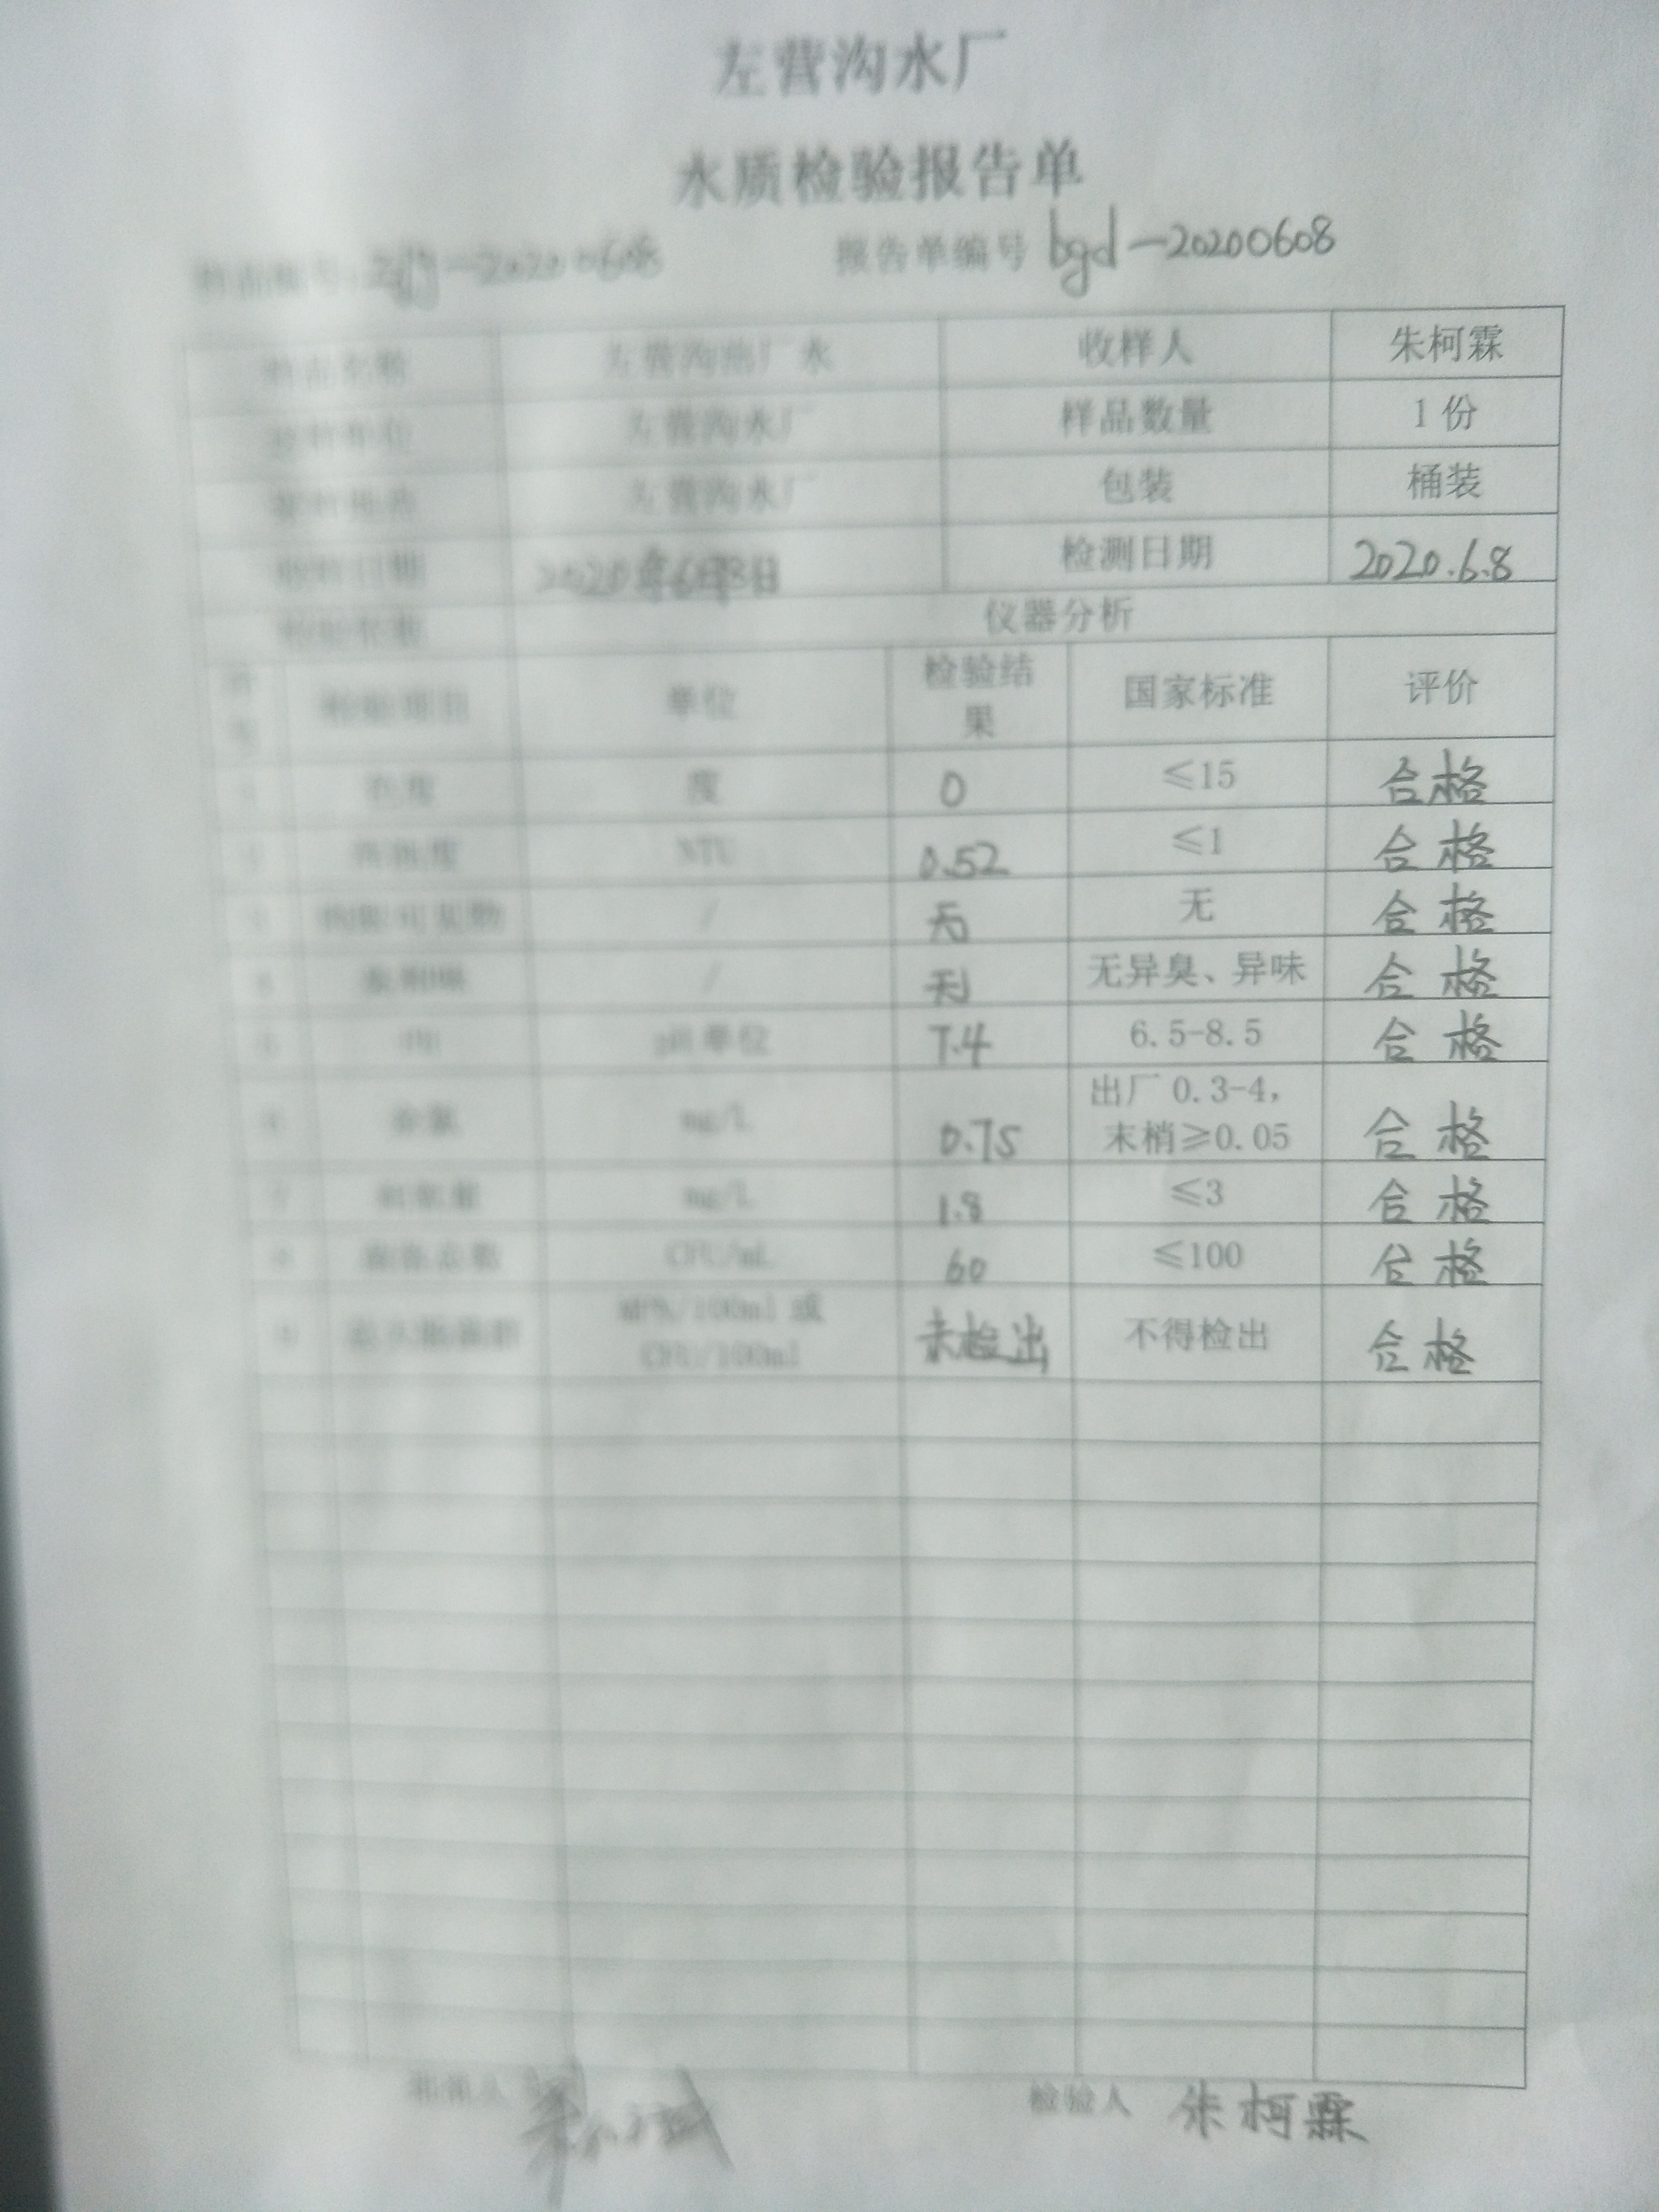 左营沟水厂
水质检验报告单
样品编号: -20200608 报告单编号 bgd-20200608
样品名称 左营沟出厂水 收样人 朱柯霖
左营沟水厂 样品数量 1份
左营沟水厂 包装 桶装
日期 2020年6月8日 检测日期 2020.6.8
仪器分析
序号 检验项目 单位 检验结果 国家标准 评价
1 色度 度 0 ≤15 合格
2 浑浊度 NTU 0.52 ≤1 合格
3 肉眼可见物 / 无 无 合格
4 臭和味 / 无 无异臭、异味 合格
5 PH pH单位 7.4 6.5-8.5 合格
6 余氯 mg/L 0.75 出厂 0.3-4, 末梢≥0.05 合格
7 耗氧量 mg/L 1.8 ≤3 合格
8 菌落总数 CFU/mL 60 ≤100 合格
9 总大肠菌群 MPN/100ml 或 CFU/100ml 未检出 不得检出 合格
检验人 朱柯霖